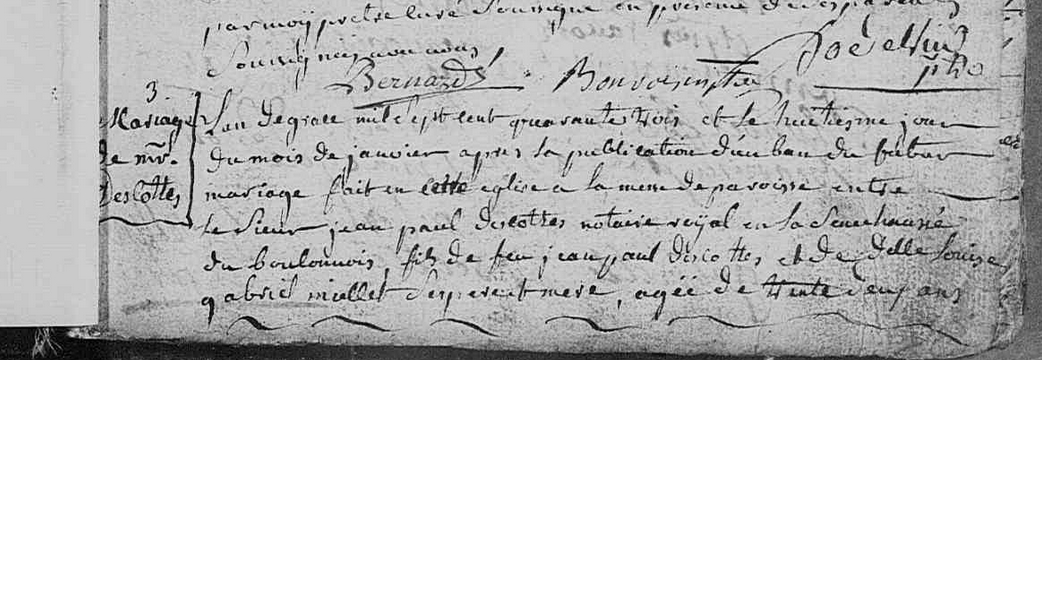 par moy prêtre curé soussigné en présence des parents
soussignés avec nous,
Bernard Bonvoisin
ptre
3
Mariage
de mr.
descottes
L'an de grace mil sept cent quarante trois et le huitiesme jour
du mois de janvier apres la publication d'un ban du futur
mariage fait en cette eglise a la messe de paroisse entre
le sieur jean paul descottes notaire royal en la senechaussé
du boulonnois, fils de feu jean paul descottes et de delle louise
gabriel miellet ses pere et mere, agée de trente deux ans